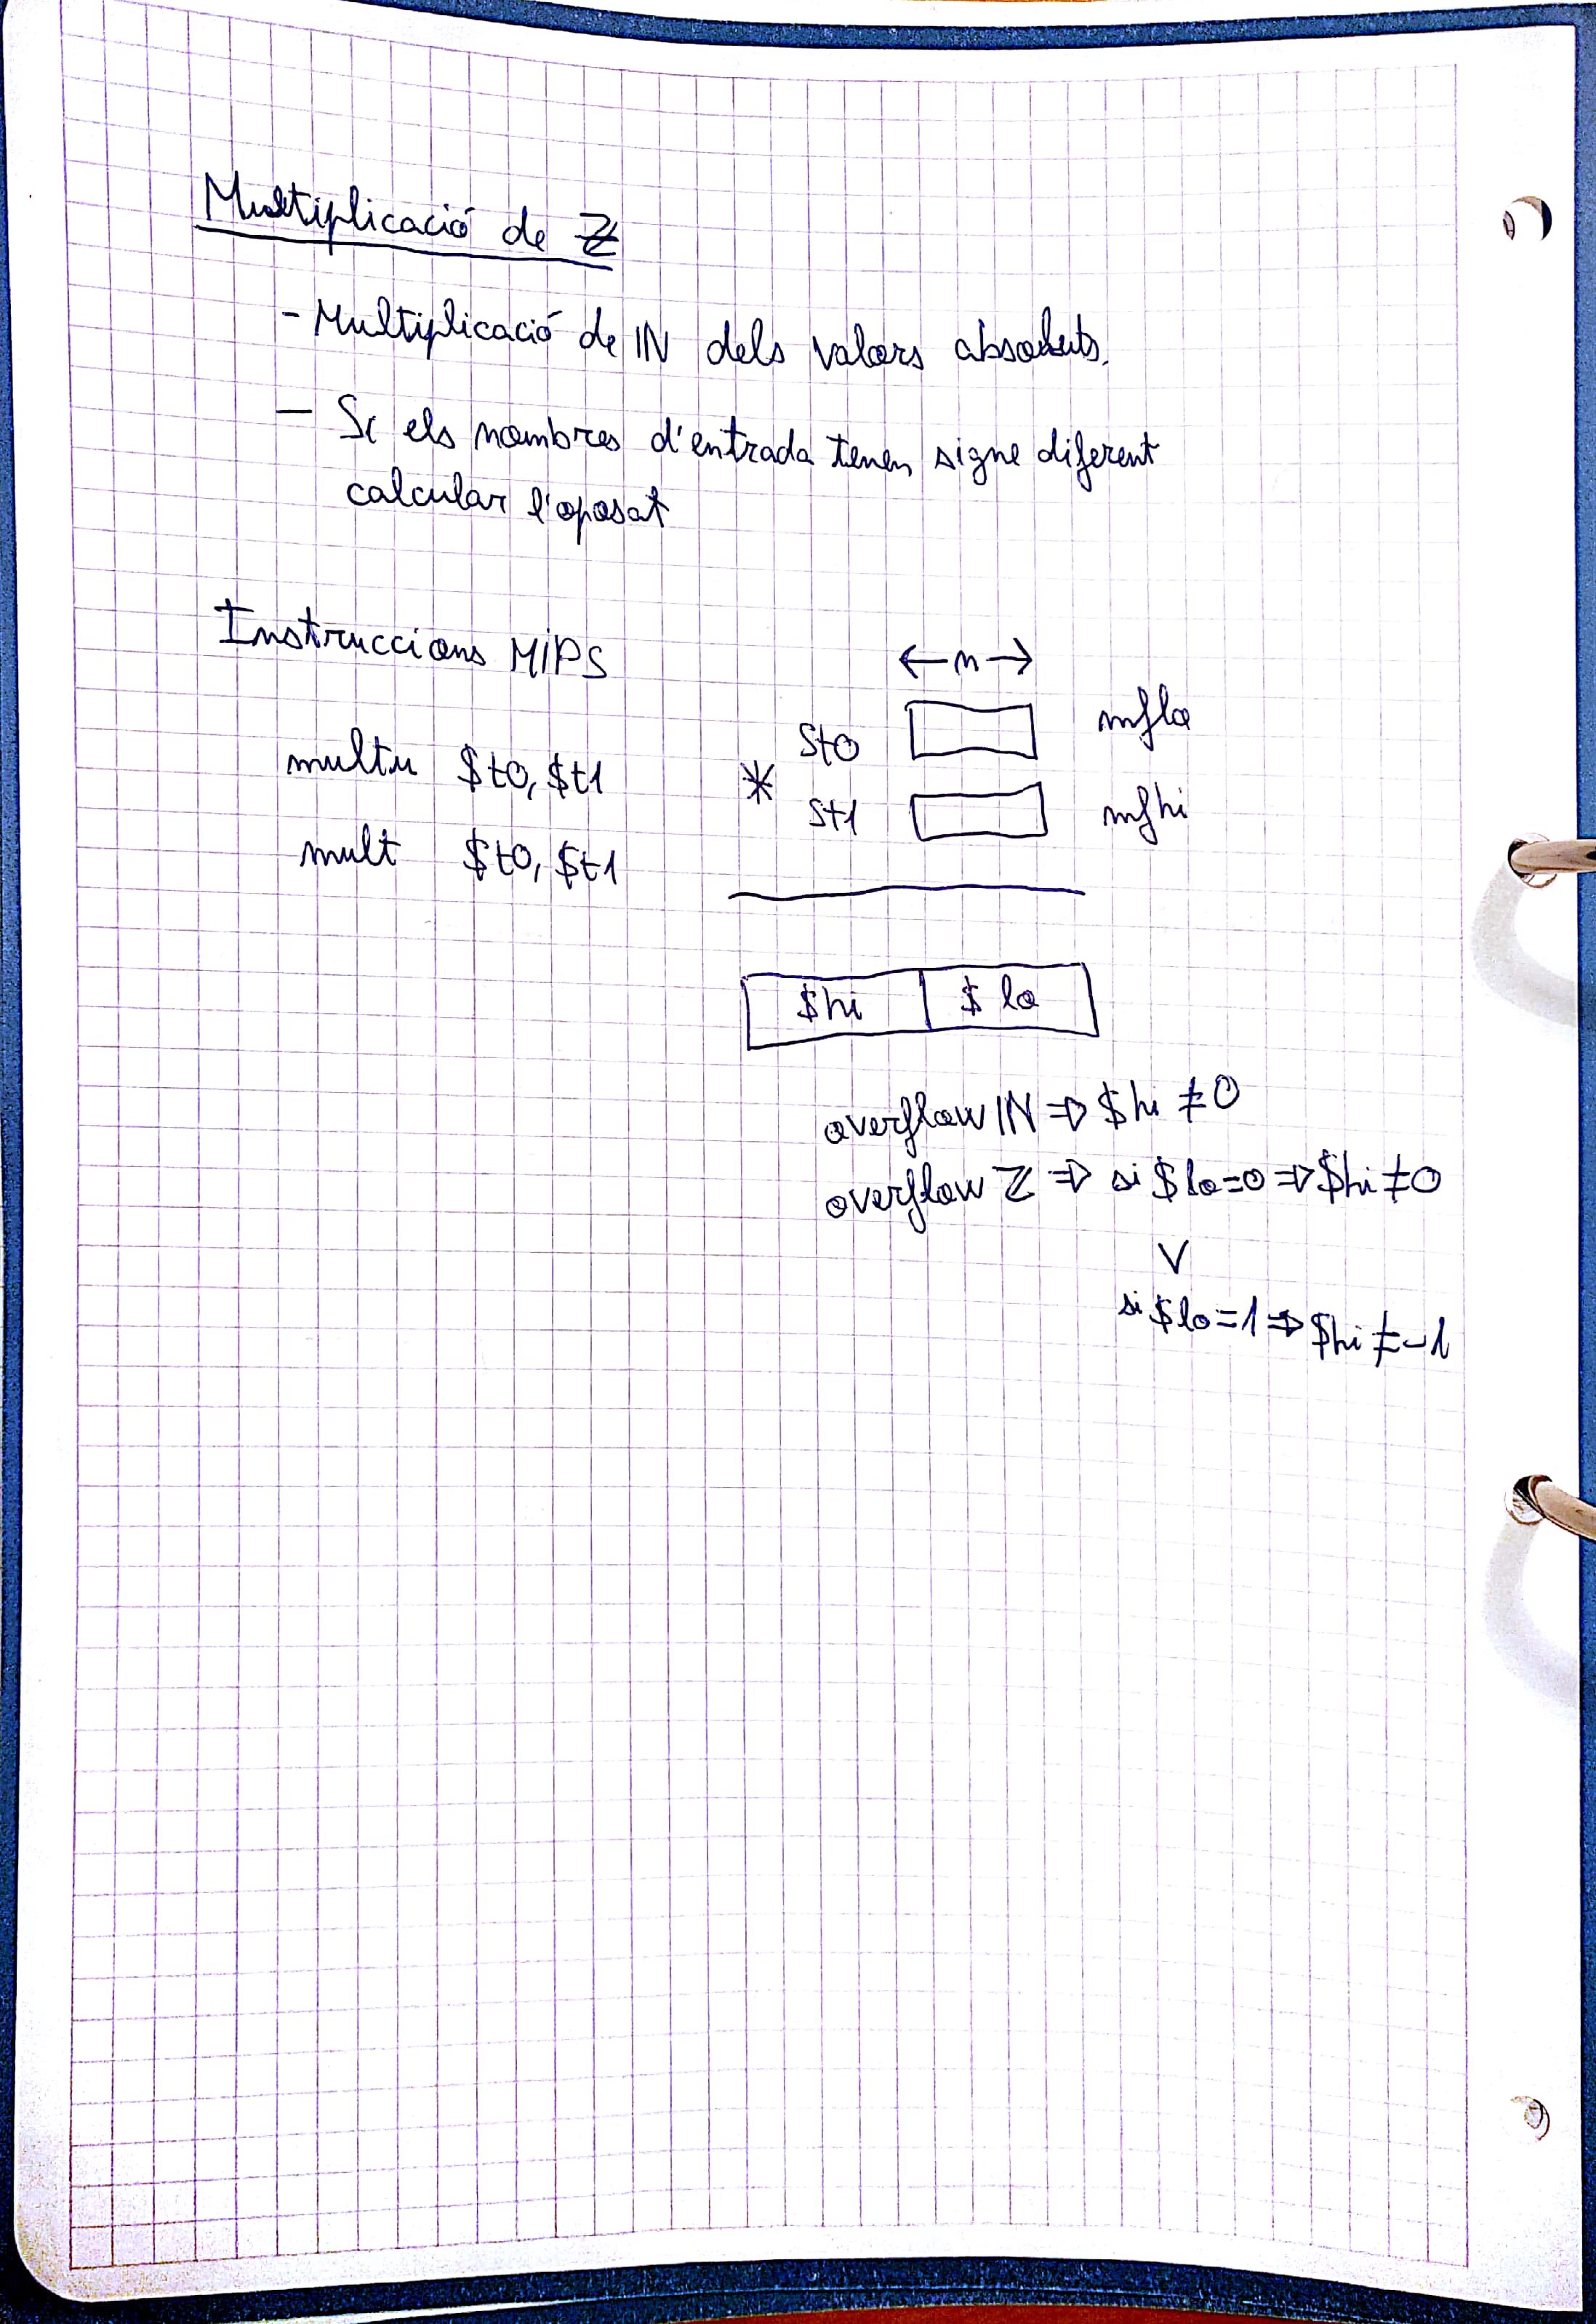 Multiplicació de ℤ
- Multiplicació de ℕ dels valors absoluts.
- Si els nombres d'entrada tenen signe diferent
calcular l'oposat
Instruccions MIPS
← n →
multu $t0, $t1
mult $t0, $t1
*
$t0
$t1
mflo
mfhi
$hi | $lo
overflow ℕ ⇒ $hi ≠ 0
overflow ℤ ⇒ si $lo=0 ⇒ $hi ≠ 0
∨
si $lo=1 ⇒ $hi ≠ -1